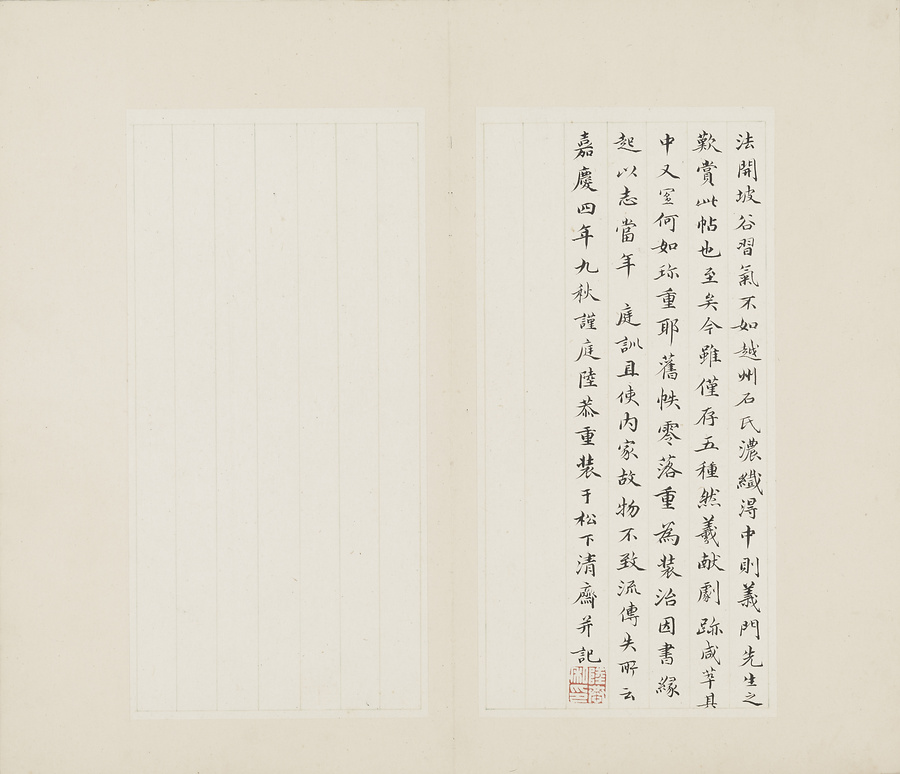 法開坡谷習氣不如越州石氏濃纖得中則義門先生之
歎賞此帖也至矣今雖僅存五種然羲献劇跡咸萃具
中又宜何如珎重耶舊帙零落重為裝治因書緣
起以志當年 庭訓且使内家故物不致流傳失所云
嘉慶四年九秋謹庭陸恭重裝于松下清齋并記